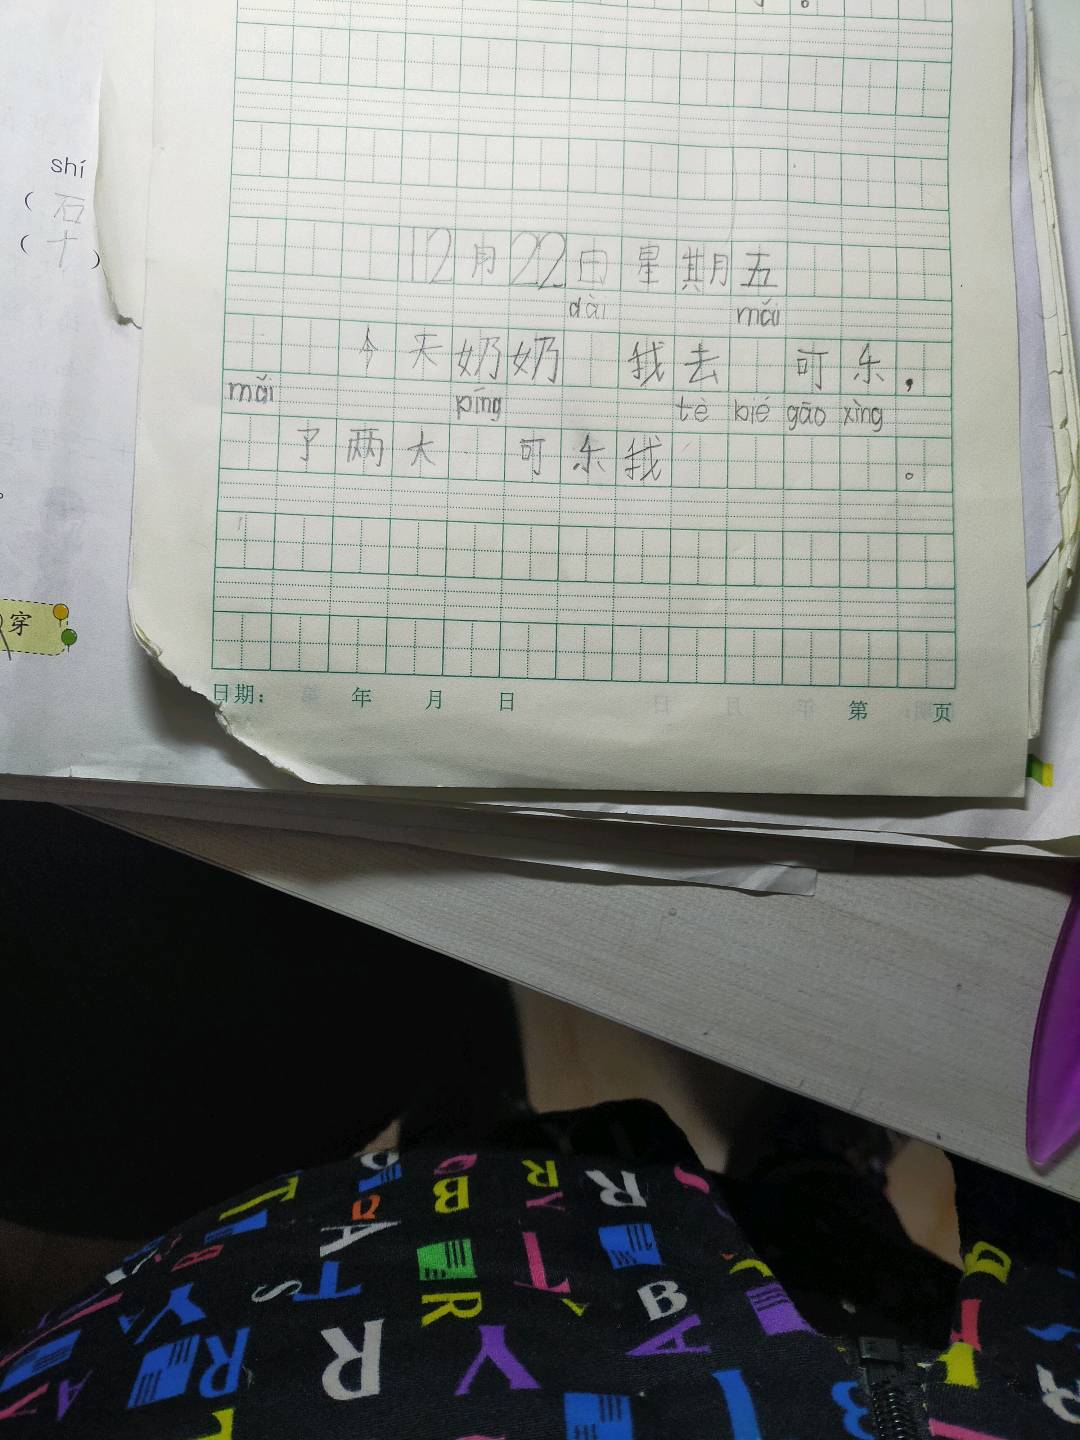 shí
( 石
( 十 )
12月22日星期五
dài mǎi
今天奶奶 我去 可乐，
mǎi píng tè bié gāo xìng
了两大 可乐我 。
穿
日期： 年 月 日 第 页